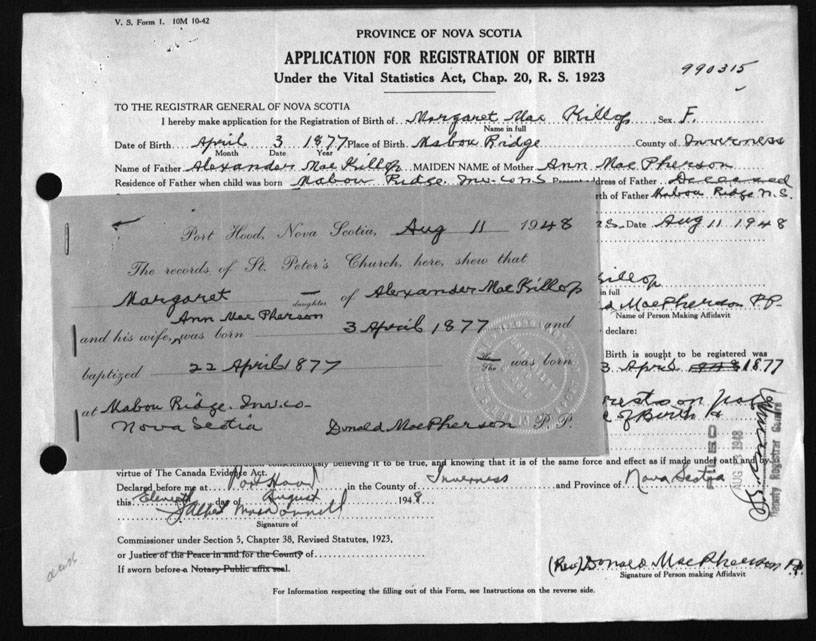 V. S. Form 1. 10M 10-42
PROVINCE OF NOVA SCOTIA
APPLICATION FOR REGISTRATION OF BIRTH
Under the Vital Statistics Act, Chap. 20, R. S. 1923
990315
TO THE REGISTRAR GENERAL OF NOVA SCOTIA
I hereby make application for the Registration of Birth of Margaret Mac Killop Sex F.
Name in full
Date of Birth April 3 1877 Place of Birth Mabou Ridge County of Inverness
Month Date Year
Name of Father Alexander MacKillop MAIDEN NAME of Mother Ann MacPherson
Residence of Father when child was born Mabou Ridge. Inv. co NS Present address of Father Deceased
rth of Father Mabou Ridge N.S.
Date Aug 11 1948
Port Hood, Nova Scotia, Aug 11 1948
The records of St. Peter's Church, here, show that
Margaret daughter of Alexander MacKillop
Ann MacPherson
and his wife, was born 3 April 1877 and
baptized 22 April 1877 She was born
at Mabou Ridge. Inv. co
Nova Scotia Donald MacPherson P.P.
illop
n full
d MacPherson P.P.
Name of Person Making Affidavit
declare:
Birth is sought to be registered was
3 April 1877
of Birth
FILED
AUG 13 1948
Deputy Registrar General
conscientiously believing it to be true, and knowing that it is of the same force and effect as if made under oath and by
virtue of The Canada Evidence Act.
Declared before me at Port Hood in the County of Inverness and Province of Nova Scotia
this Eleventh day of August 1948
Signature of
Commissioner under Section 5, Chapter 38, Revised Statutes, 1923,
or Justice of the Peace in and for the County of
If sworn before a Notary Public affix seal.
(Rev) Donald MacPherson P.P.
Signature of Person making Affidavit
For Information respecting the filling out of this Form, see Instructions on the reverse side.